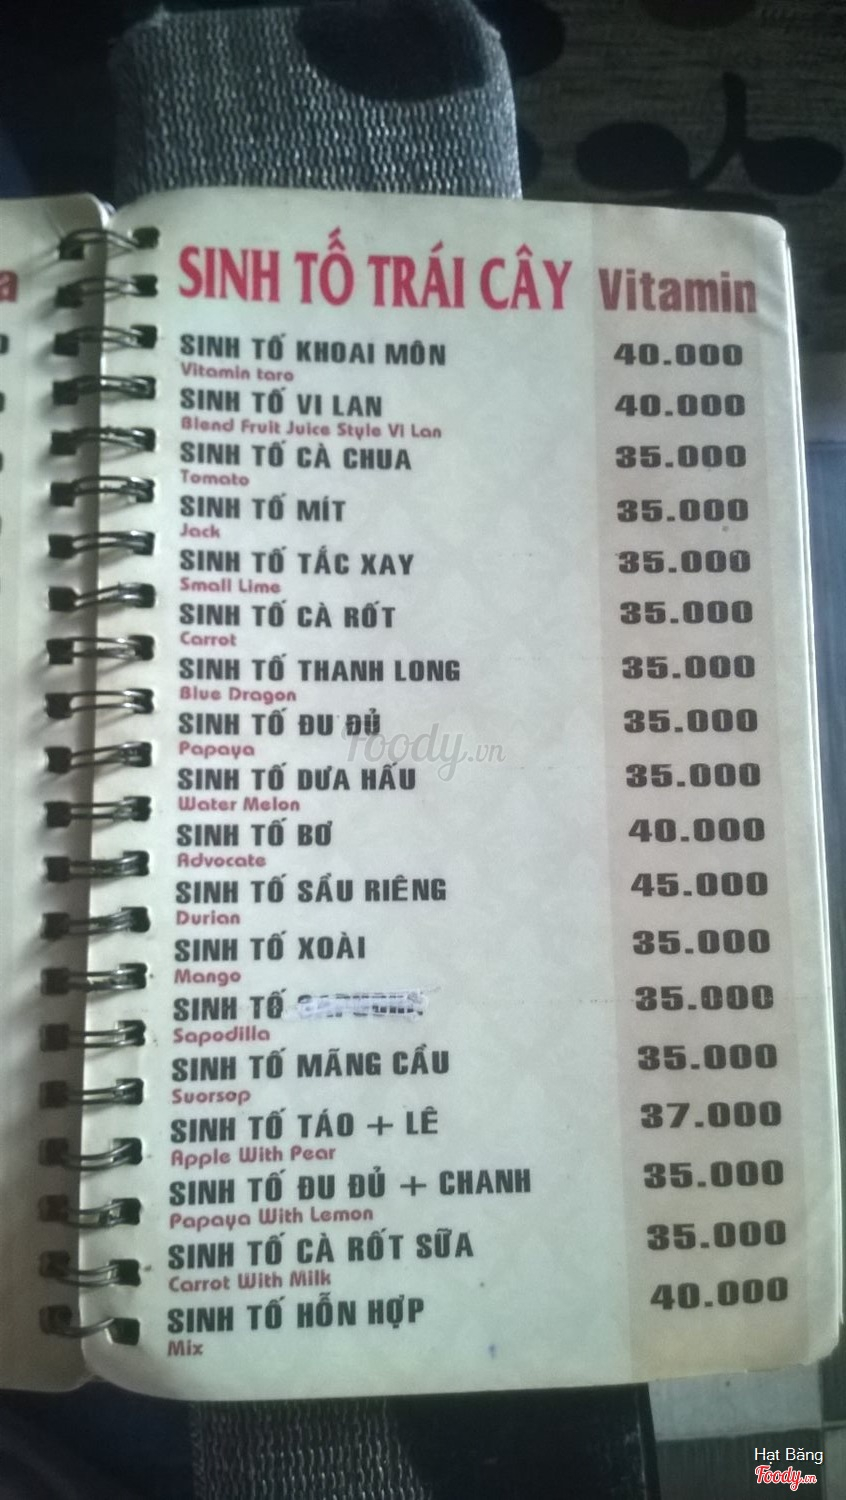 a
SINH TỐ TRÁI CÂY Vitamin
SINH TỐ KHOAI MÔN 40.000
Vitamin taro
SINH TỐ VI LAN 40.000
Blend Fruit Juice Style Vi Lan
SINH TỐ CÀ CHUA 35.000
Tomato
SINH TỐ MÍT 35.000
Jack
SINH TỐ TẮC XAY 35.000
Small Lime
SINH TỐ CÀ RỐT 35.000
Carrot
SINH TỐ THANH LONG 35.000
Blue Dragon
SINH TỐ ĐU ĐỦ 35.000
Papaya
Foody.vn
SINH TỐ DƯA HẤU 35.000
Water Melon
SINH TỐ BƠ 40.000
Advocate
SINH TỐ SẦU RIÊNG 45.000
Durian
SINH TỐ XOÀI 35.000
Mango
SINH TỐ 35.000
Sapodilla
SINH TỐ MÃNG CẦU 35.000
Suorsop
SINH TỐ TÁO + LÊ 37.000
Apple With Pear
SINH TỐ ĐU ĐỦ + CHANH 35.000
Papaya With Lemon
SINH TỐ CÀ RỐT SỮA 35.000
Carrot With Milk
SINH TỐ HỖN HỢP 40.000
Mix
Hạt Băng
Foody.vn